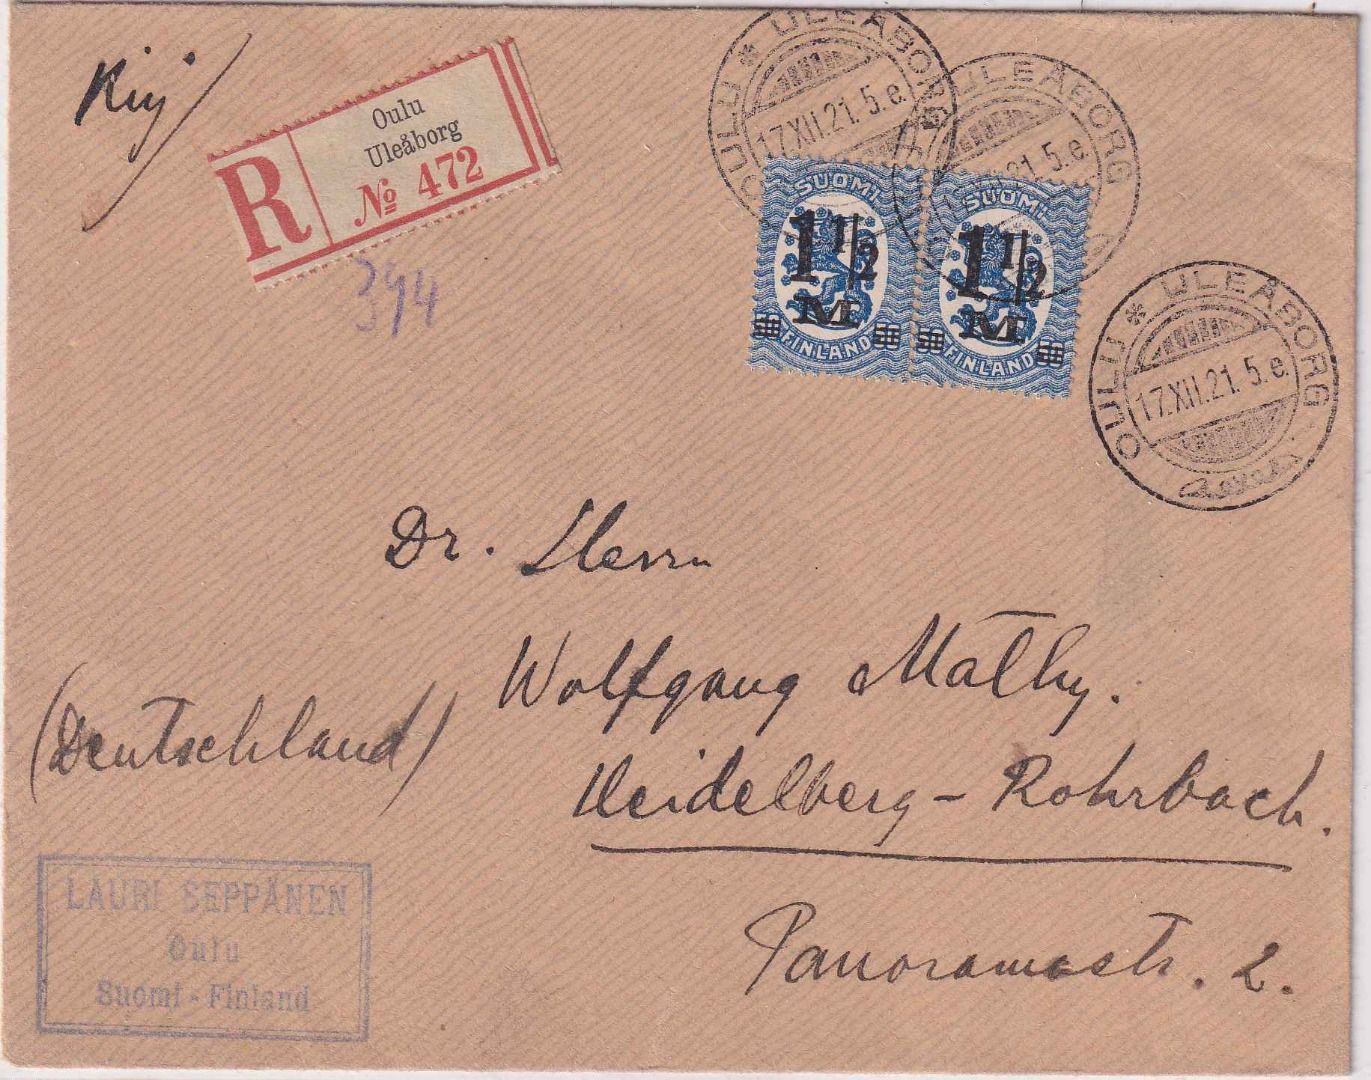 Kirj.
R
Oulu
Uleåborg
№ 472
394
OULU * ULEÅBORG
17.XII.21. 5.e.
ULEÅBORG
21. 5.e
OULU * ULEÅBORG
17.XII.21. 5.e.
SUOMI
1 1/2
M
50 50
FINLAND
SUOMI
1 1/2
M
50 50
FINLAND
Dr. Herrn
Wolfgang Mathy.
(Deutschland)
Heidelberg - Rohrbach.
Panoramastr. 2.
LAURI SEPPÄNEN
Oulu
Suomi - Finland